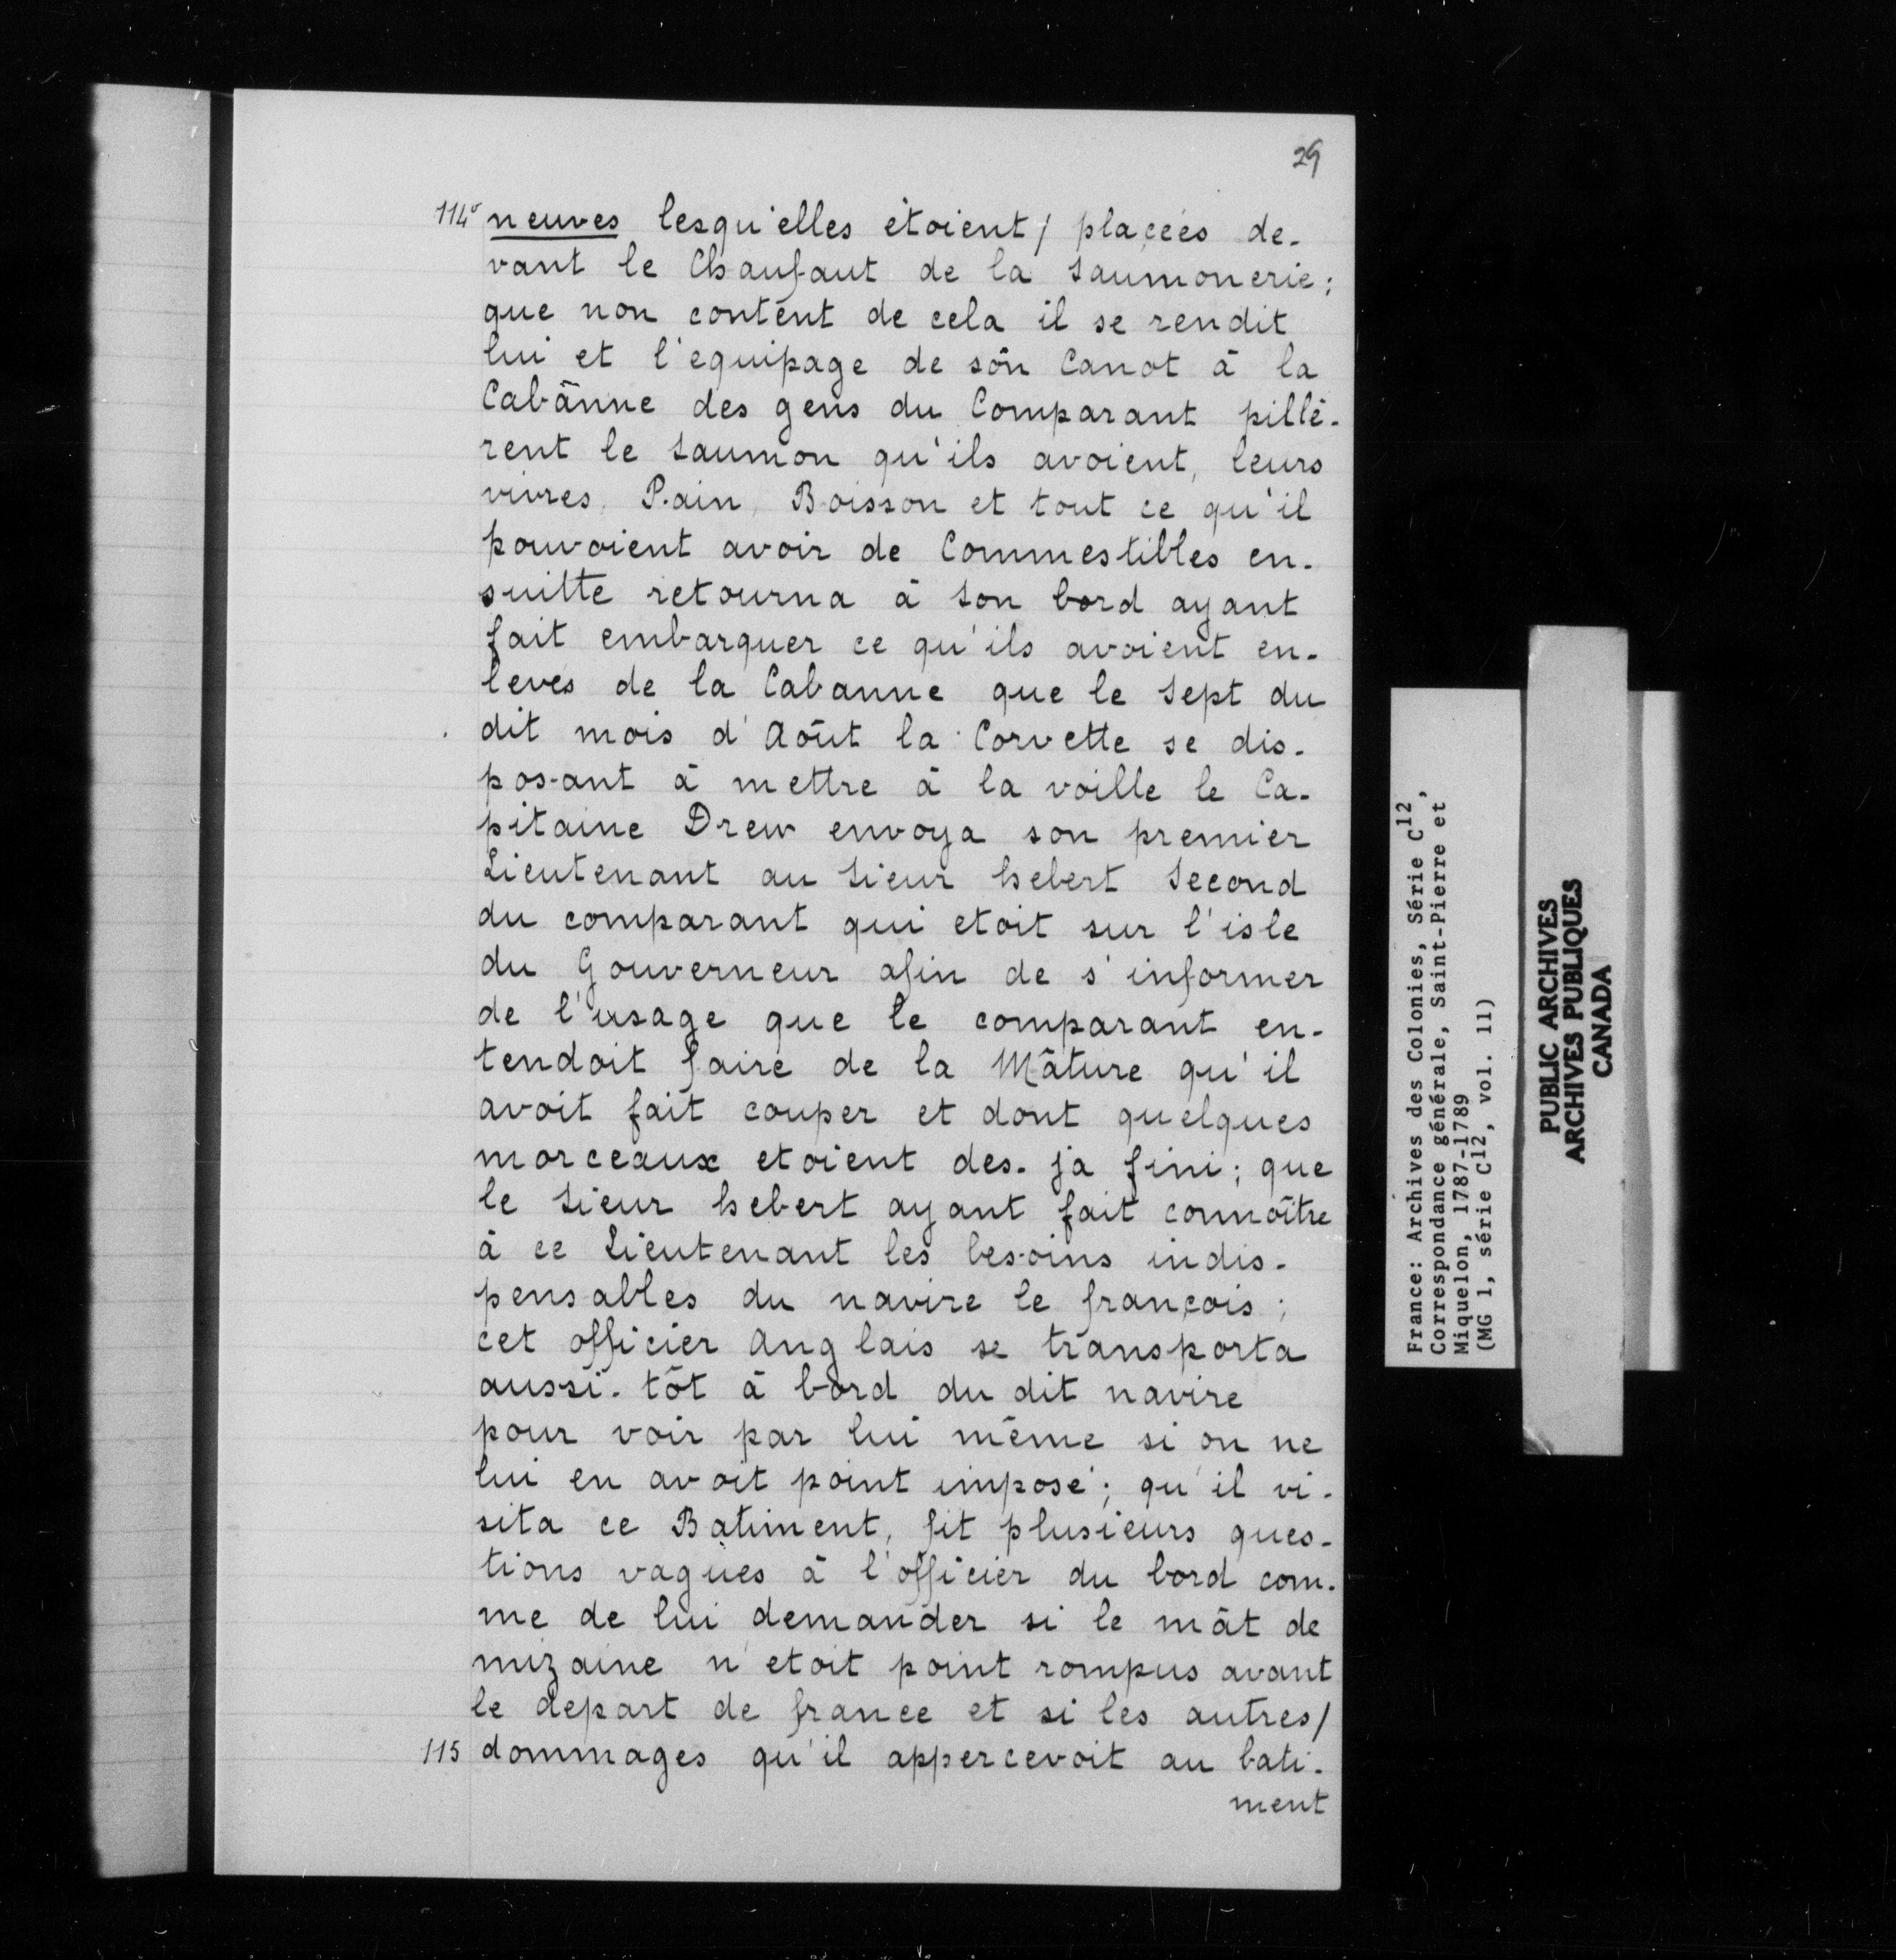 29
114v neuves lesqu'elles étoient / placées de-
vant le Chaufaut de la Saumonerie;
que non contént de cela il se rendit
lui et l'equipage de son Canot à la
Cabânne des gens du Comparant pillé-
rent le Saumon qu'ils avoient, leurs
vivres, Pain, Boisson et tout ce qu'il
pouvoient avoir de Commestibles en-
suitte retourna à Son bord ayant
fait embarquer ce qu'ils avoient en-
levés de la Cabanne que le Sept du
dit mois d'Août la Corvette se dis-
posant à mettre à la voille le Ca-
pitaine Drew envoya son premier
Lieutenant au Sieur hebert Second
du comparant qui etoit sur l'isle
du Gouverneur afin de s'informer
de l'usage que le comparant en-
tendoit faire de la Mâture qu'il
avoit fait couper et dont quelques
morceaux etoient des-ja fini; que
le Sieur hebert ayant fait connoître
à ce Lieutenant les besoins indis-
pensables du navire le françois;
cet officier Anglais se transporta
aussi-tôt à bord du dit navire
pour voir par lui même si on ne
lui en avoit point imposé; qu'il vi-
sita ce Batiment, fit plusieurs ques-
tions vagües à l'officier du bord com-
me de lui demander si le mât de
mizaine n'etoit point rompus avant
le depart de france et si les autres /
115 dommages qu'il appercevoit au bati-
ment
France: Archives des Colonies, Série C12,
Correspondance générale, Saint-Pierre et
Miquelon, 1787-1789
(MG 1, série C12, vol. 11)
PUBLIC ARCHIVES
ARCHIVES PUBLIQUES
CANADA